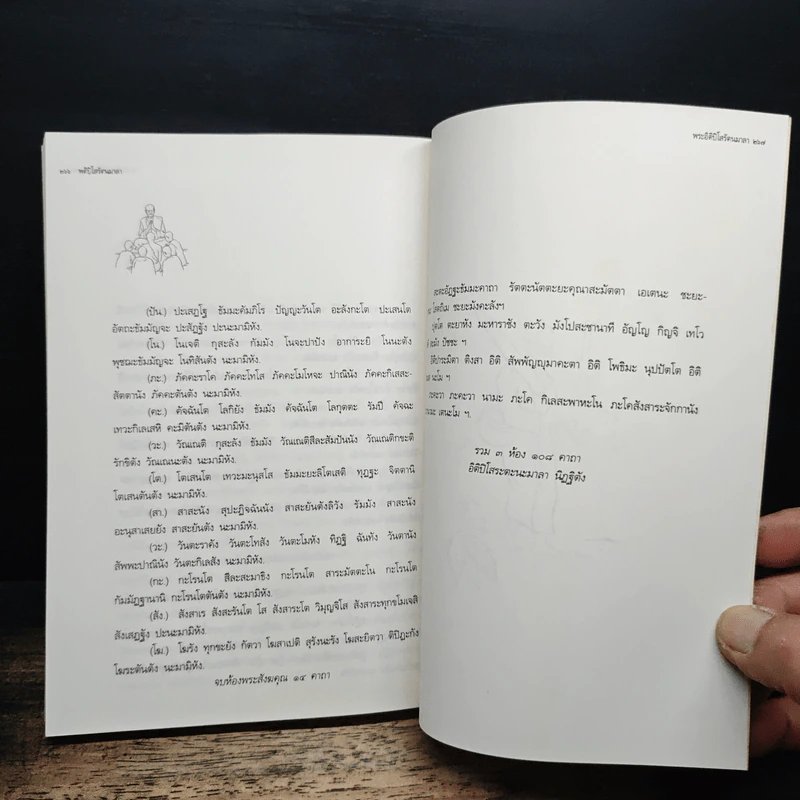 ๒๖๖ พุติปิโสรัตนมาลา
(ปัน.) ปะเสฏโฐ ธัมมะคัมภิโร ปัญญะวันโต อะลังกะโต ปะเสนโต
อัตถะธัมมัญจะ ปะสัฏฐัง ปะนะมามิหัง.
(โน.) โนเจติ กุสะลัง กัมมัง โนจะปาปัง อาการะยิ โนนะตัง
พุชฌะธัมมัญจะ โนทิสันตัง นะมามิหัง.
(ภะ.) ภัคคะราโค ภัคคะโทโส ภัคคะโมโหจะ ปาณินัง ภัคคะกิเลสะ-
สัตตานัง ภัคคะตันตัง นะมามิหัง.
(คะ.) คัจฉันโต โลกิยัง ธัมมัง คัจฉันโต โลกุตตะ รัมปิ คัจฉะ
เทวะกิเลเสหิ คะมิตันตัง นะมามิหัง.
(วะ.) วัณเณติ กุสะลัง ธัมมัง วัณเณติสีละสัมปันนัง วัณเณติกขะติ
รักขิตัง วัณเณนะตัง นะมามิหัง.
(โต.) โตเสนโต เทวะมะนุสโส ธัมมะยะลิโตเสติ ทุฏฐะ จิตตานิ
โตเสนตันตัง นะมามิหัง.
(สา.) สาสะนัง สุปะฏิจฉันนัง สาสะยันตังลิวัง รัมมัง สาสะนัง
อะนุสาเสยยัง สาสะยันตัง นะมามิหัง.
(วะ.) วันตะราคัง วันตะโทสัง วันตะโมหัง ทิฏฐิ ฉันทัง วันตานัง
สัพพะปาณินัง วันตะกิเลสัง นะมามิหัง.
(กะ.) กะโรนโต สีละสะมาธิง กะโรนโต สาระมัตตะโน กะโรนโต
กัมมัฏฐานานิ กะโรนโตตันตัง นะมามิหัง.
(สัง.) สังสาเร สังสะรันโต โส สังสาระโต วิมุญจิโส สังสาระทุกขโมเจสิ
สังเสฏฐัง ปะนะมามิหัง.
(โฆ.) โฆรัง ทุกขะยัง กัตวา โฆสาเปติ สุรังนะรัง โฆสะยิตวา ติปิฎะกัง
โฆระตันตัง นะมามิหัง.
จบห้องพระสังฆคุณ ๑๔ คาถา
พระอิติปิโสรัตนมาลา ๒๖๗
สะตะอัฏฐะธัมมะคาถา รัตตะนัตตะยะคุณาสะมัตตา เอเตนะ ชะยะ-
โสตถิเม ชะยะมังคะลังฯ
ตะยาหัง มะหาราชัง ตะวัง มังโปสะชานาที อัญโญ กิญจิ เทโว
ปัชชะ ฯ
อิติปาระมิตา ติงสา อิติ สัพพัญญุมาคะตา อิติ โพธิมะ นุปปัตโต อิติ
นะโม ฯ
ภะคะวา นามะ ภะโค กิเลสะพาหะโน ภะโคสังสาระจักกานัง
เตนะโม ฯ.
รวม ๓ ห้อง ๑๐๘ คาถา
อิติปิโสระตะนะมาลา นิฏฐิตัง